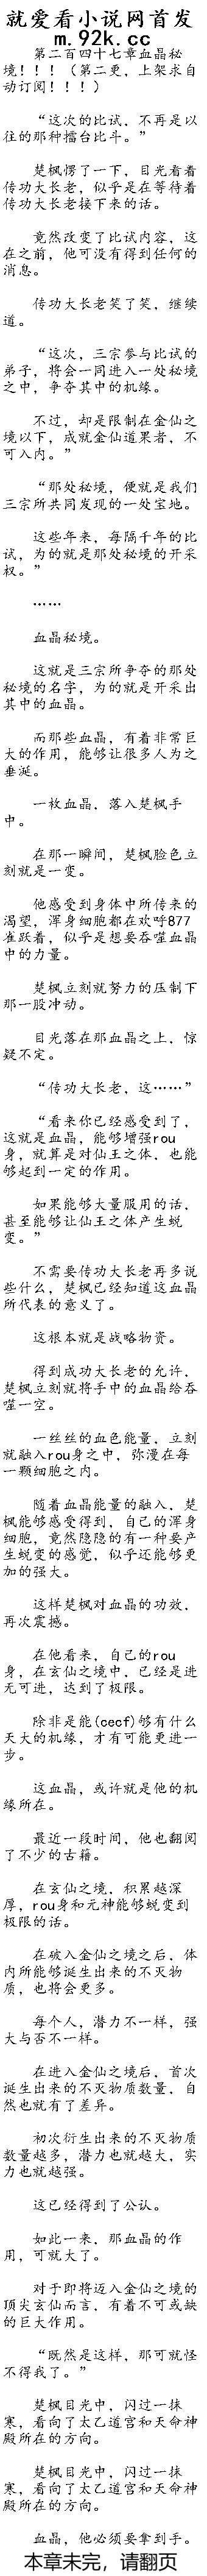 就爱看小说网首发
m.92k.cc
第二百四十七章血晶秘
境！！！（第二更，上架求自
动订阅！！！）
“这次的比试，不再是以
往的那种擂台比斗。”
楚枫愣了一下，目光看着
传功大长老，似乎是在等待着
传功大长老接下来的话。
竟然改变了比试内容，这
在之前，他可没有得到任何的
消息。
传功大长老笑了笑，继续
道。
“这次，三宗参与比试的
弟子，将会一同进入一处秘境
之中，争夺其中的机缘。
不过，却是限制在金仙之
境以下，成就金仙道果者，不
可入内。”
“那处秘境，便就是我们
三宗所共同发现的一处宝地。
这些年来，每隔千年的比
试，为的就是那处秘境的开采
权。”
……
血晶秘境。
这就是三宗所争夺的那处
秘境的名字，为的就是开采出
其中的血晶。
而那些血晶，有着非常巨
大的作用，能够让很多人为之
垂涎。
一枚血晶，落入楚枫手
中。
在那一瞬间，楚枫脸色立
刻就是一变。
他感受到身体中所传来的
渴望，浑身细胞都在欢呼877
雀跃着，似乎是想要吞噬血晶
中的力量。
楚枫立刻就努力的压制下
那一股冲动。
目光落在那血晶之上，惊
疑不定。
“传功大长老，这……”
“看来你已经感受到了，
这就是血晶，能够增强rou
身，就算是对仙王之体，也能
够起到一定的作用。
如果能够大量服用的话，
甚至能够让仙王之体产生蜕
变。”
不需要传功大长老再多说
些什么，楚枫已经知道这血晶
所代表的意义了。
这根本就是战略物资。
得到成功大长老的允许，
楚枫立刻就将手中的血晶给吞
噬一空。
一丝丝的血色能量，立刻
就融入rou身之中，弥漫在每
一颗细胞之内。
随着血晶能量的融入，楚
枫能够感受得到，自己的浑身
细胞，竟然隐隐的有一种要产
生蜕变的感觉，似乎还能够更
加的强大。
这样楚枫对血晶的功效，
再次震撼。
在他看来，自己的rou
身，在玄仙之境中，已经是进
无可进，达到了极限。
除非是能(cecf)够有什么
天大的机缘，才有可能更进一
步。
这血晶，或许就是他的机
缘所在。
最近一段时间，他也翻阅
了不少的古籍。
在玄仙之境，积累越深
厚，rou身和元神能够蜕变到
极限的话。
在破入金仙之境之后，体
内所能够诞生出来的不灭物
质，也将会更多。
每个人，潜力不一样，强
大与否不一样。
在进入金仙之境后，首次
诞生出来的不灭物质数量，自
然也就有了差异。
初次衍生出来的不灭物质
数量越多，潜力也就越大，实
力也就越强。
这已经得到了公认。
如此一来，那血晶的作
用，可就大了。
对于即将迈入金仙之境的
顶尖玄仙而言，有着不可或缺
的巨大作用。
“既然是这样，那可就怪
不得我了。”
楚枫目光中，闪过一抹
寒，看向了太乙道宫和天命神
殿所在的方向。
楚枫目光中，闪过一抹
寒，看向了太乙道宫和天命神
殿所在的方向。
血晶，他必须要拿到手。
本章未完，请翻页